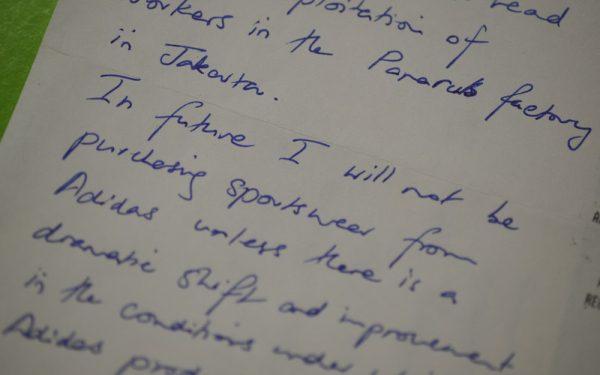 read
ploitation of
workers in the Panarub factory
in Jakarta.
In future I will not be
purchasing sportswear from
Adidas unless there is a
dramatic shift and improvement
in the conditions under
Adidas prod